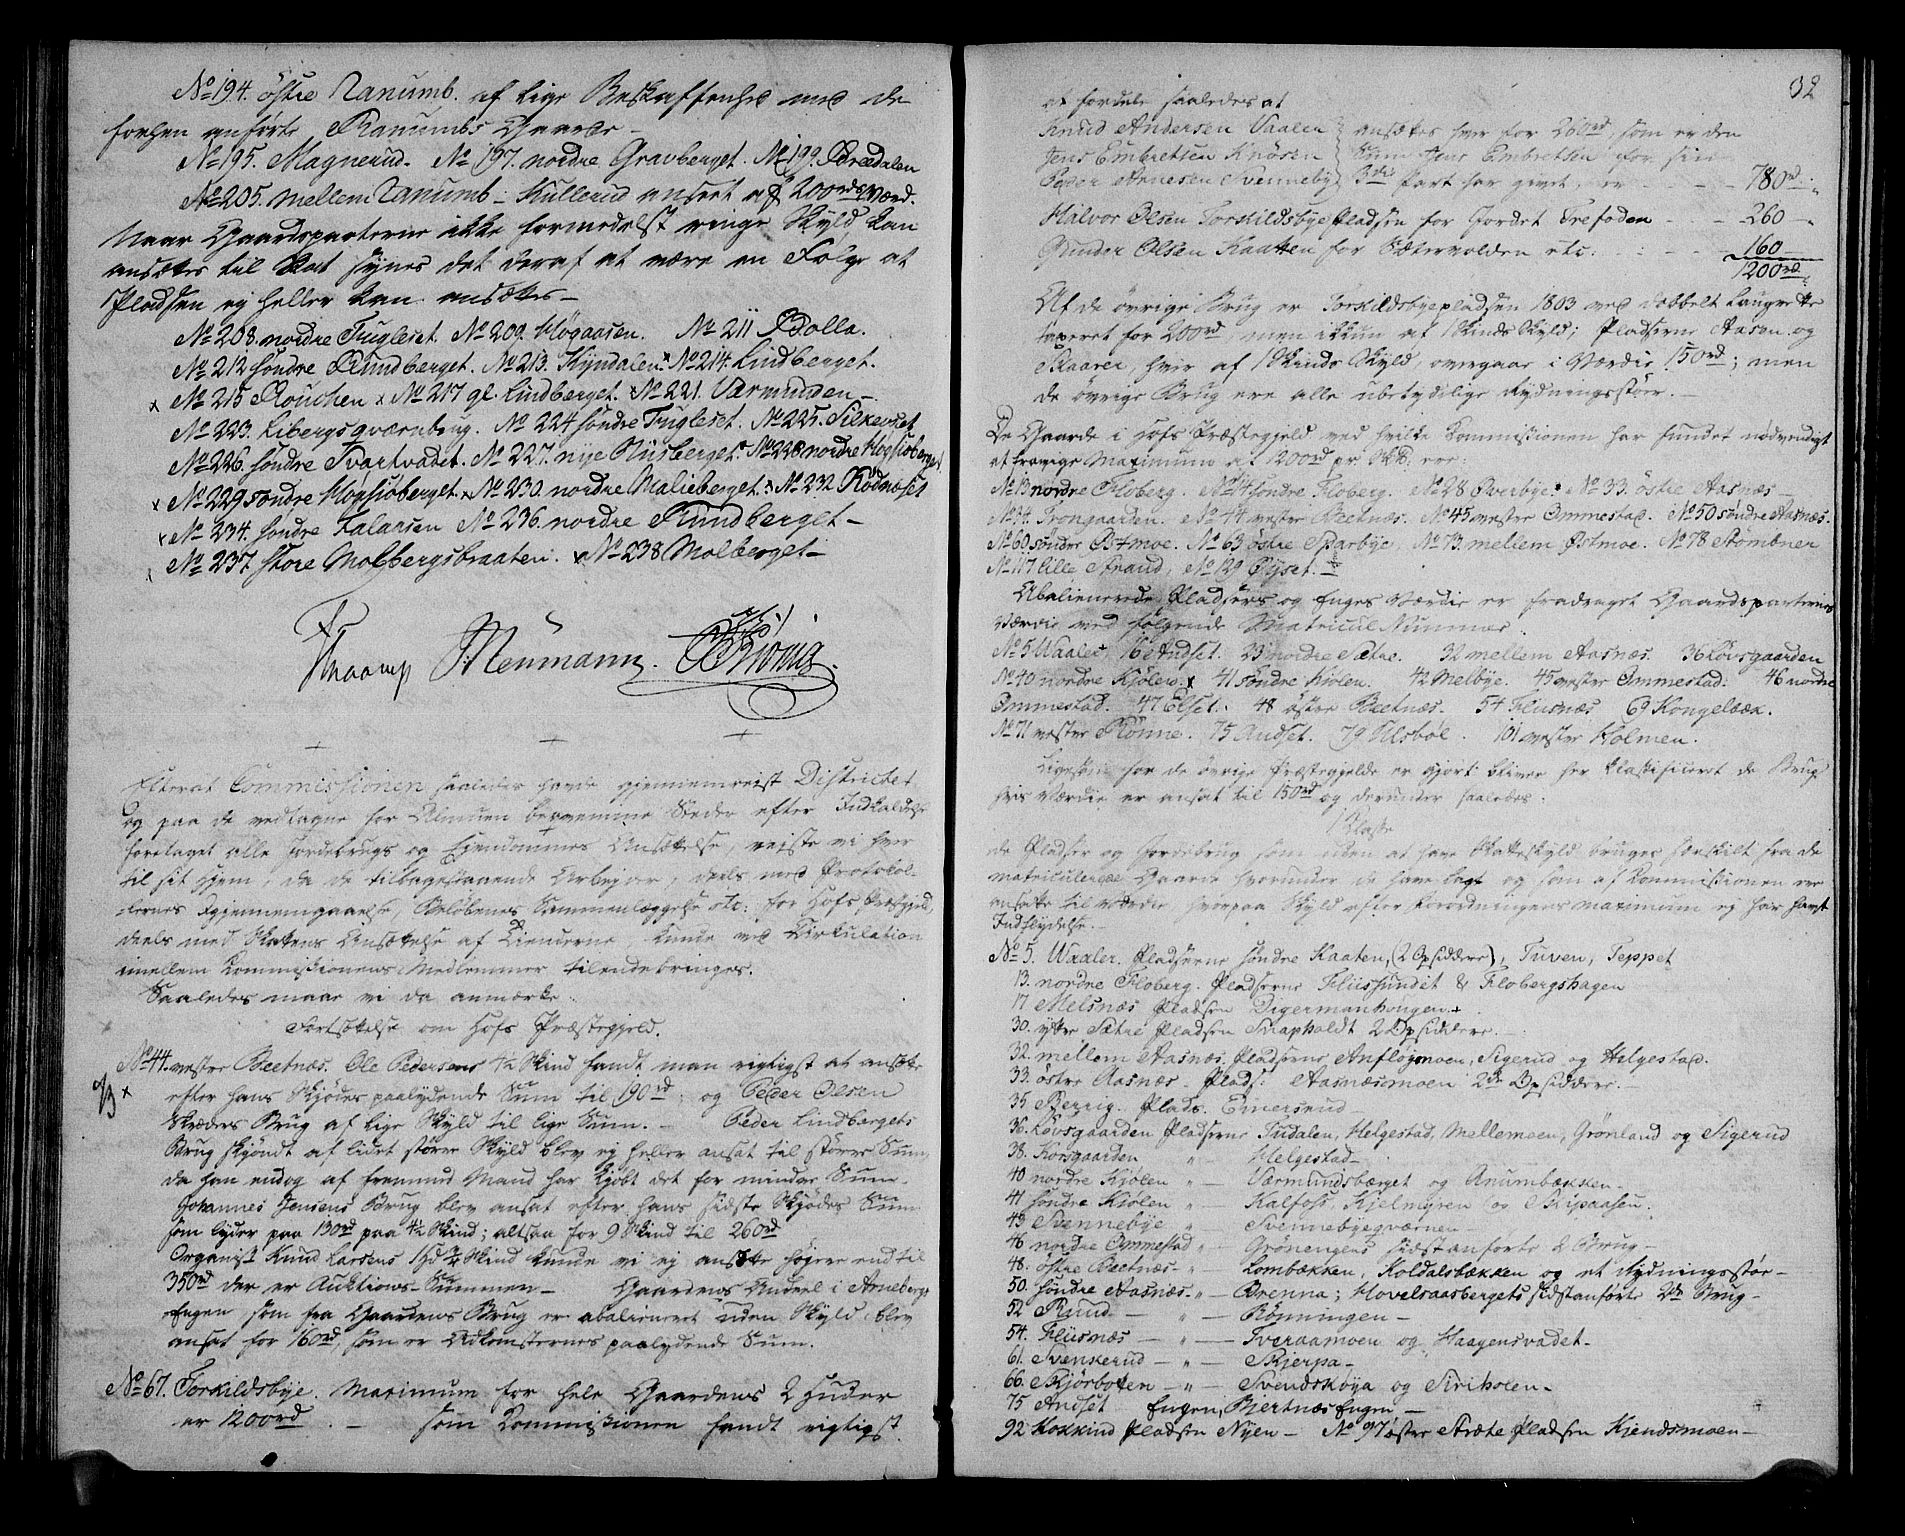 No 194. östre Ranumb. af lige Beskaffenhed med de
forhen anförte Ranumbs Gaarde –
No 195. Magnerud. No 197. nordre Gravberget. No 199. Brædalen
No 205. mellem Ranumb – Kullerud ansært af 200rds Værd.
Naar Gaardsparterne ikke formedelst ringe Skyld kan
ansættes til Skat synes det deraf at være en Følge at
Pladsen ej heller kan ansættes –
No 208. nordre Fugleset. No 209. Høgaasen. No 211 Bolla.
No 212 söndre Rundberget. No 213. Kyndalen. x No 214. Lindberget.
x No 215 Rouchen x No 217 gl. Lindberget. x No 221. Varmunden –
No 223. Libergsqværnbrug. No 224 söndre Fugleset. No 225. Silkeväet
No 226. söndre Svartvadet. No 227. nye Riisberget. No 228 nordre Høgsioberget.
x No 229 söndre Høgsioberget. x No 230. nordre Malieberget. No 232 Rödnæset
x No 234. söndre Falaasen No 236. nordre Rundberget –
No 237. Store Molbergsbraaten. x No 238 Molberget –
Thaarup Neumann. König.
Efterat Commissionen saaledes havde gjennemreist Districtet
og paa de vedtagne for Almuen beqvemme Steder efter Indkaldelse
foretaget alle Jordebrugs og Ejendommes Ansættelse, rejste vi hver
til sit Hjem, da de tilbagestaaende Arbejder, deels med Protokol-
lernes Igjennemgaaelse, Beløbenes Sammenlæggelse etc: for Hofs Præstegjeld,
deels med Skatens Ansættelse af Tienderne, kunde ved Cirkulation
imellem Kommissionens Medlemmer tilendebringes.
Saaledes maae vi da anmærke.
Fortsættelse om Hofs Præstegjeld.
No 44. vestre Beetnæs. Ole Pedersens 4½ Skind fandt man rigtigst at ansætte
efter hans Skjødes paalydende Sum til 190rd; og Peder Olsen
Kræders Brug af lige Skyld til lige Sum. – Peder Lindbergets
Brug skjöndt af lidet större Skyld blev ej heller ansat til större Sum,
da han endog af fremmed Mand har kjöbt det for mindre Sum.
Johannes Jensens Brug blev ansat efter hans sidste Skjødes Sum
som lyder paa 130rd paa 4½ Skind; altsaa for 9 Skind til 260rd
Organist Knud Larsens 1 Hd ¾ Skind kunde vi ej ansætte høyere end til
350rd der er Auctions-Summen – Gaardens Andeel i Arneberg
Engen som fra Gaardens Brug er abalieneret uden Skyld blev
ansat for 160rd, som er Adkomsternes paalydende Sum.
No 67. Torkildsbye. Maximum for hele Gaardens 2 Huder
er 1200rd. – som Kommissionen fandt rigtigst
32
at fordele saaledes at
Knud Andersen Vaaler ansættes hver for 260rd, som er den
Jens Embretsen Knösen Sum Jens Embretsen for sin
Peder Arnesen Svennebye 3die Part har givet, er – 780rd.
Halvor Olsen Torkildsbye Pladsen for Jordet Trefoden – 260 –
Gunder Olsen Kaatten for Sætervolden etc. – 160
1200rd.
Af de övrige Brug er Torkildsbyepladsen 1803 med dobbelt Laugrette
taxeret for 200rd, men ikkun af 1 Skinds Skyld; Pladserne Aasen og
Skaaret, hver af 1 Skinds Skyld, overgaar i Værdie 150rd; men
de övrige Brug ere alle ubetydelige Rydningsstør. –
De Gaarde i Hofs Præstegjeld ved hvilke Kommissionen har fundet nødvendigt
at fravige Maximum af 1200rd pr: Skd: ere:
No 13 nordre Floberg. No 14 söndre Floberg. No 28 Overbye. No 33. östre Aasnæs –
No 34. Trongaarden. No 44 vestre Beetnæs. No 45 vestre Ommestad. No 50 söndre Aasnæs.
No 60 söndre Østmoe. No 63 östre Sparbye, No 73. mellem Østmoe. No 78 Stombner
No 117 lille Strand, No 129 Öyset. –
Abalienerede Pladsers og Enges Værdie er fradraget Gaardsparternes
Værdie ved følgende Matricul Nummer.
No 5 Waaler, 16 Andset. 29 nordre Sætre. 32 mellem Aasnæs. 36 Lövsgaarden
No 40 nordre Kjölen x 41 söndre Kjölen. 42 Melbye. 45 vestre Ommestad. 46 nordre
Ommestad. 47 Elset. 48 östre Beetnæs. 54 Fliisnæs 69 Kongelæen.
No 71 vestre Rönne. 75 Andset. 79 Ulsböl. 101 vestre Holmen.
Ligesom for de övrige Præstegjelde er gjort bliver her Classificeret de Brug
hvis Værdie er ansat til 150rd og derunder saaledes:
1 Classe
de Pladser og Jordebrug som uden at have Skatteskyld bruges særskilt fra de
matriculerede Gaarde hvorunder de have ligt og som af Kommissionen ere
ansatte til Værdie, hvorpaa Skyld efter Forordningens maximum ej har havt
Indflydelse. –
No 5. Waaler. Pladserne söndre Kaaten, (2 Opsiddere), Tuven, Teppet
13. nordre Floberg. Pladserne Fliissundet & Flobergshagen
17 Melsnæs Pladsen Digermanhougen.
30. yttre Sætre Pladsen Snapholdt 2 Opsiddere. –
32. mellem Aasnæs, Pladserne Anfløymoen, Sigerud og Helgestad.
33. östre Aasnæs. Plads: Aasnæsmoen 2de Opsiddere. –
35 Berrig. Plads. Emersrud –
36. Lövsgaarden Pladserne Tudalen, Helgestad, Mellemoen, Grönland og Sigerud
38. Korsgaarden " – Helgestad –
40 nordre Kjölen " – Varmundsbærget og Anumbækken –
41 söndre Kjölen " – Kalfoss, Kjelmyren og Skripaasen.
43 Svennebye " – Svennebyeqværnen –
46 nordre Ommestad " – Grönengens sidstanførte 2 Brug –
48. östre Beetnæs – " – Lombækken, Koldalsbækken og et Rydningsstør –
50. söndre Aasnæs. " – Brenna; Hovelsaasbergets sidstanførte 2de Brug –
52 Rund – " – Rönningen –
54. Fliisnæs – " – Tveraamoen og Haagensvadet –
61. Svenkerud – " – Skjerpa –
66. Skjörboten – " – Svendskøya og Siriholen –
75 Andset Engen, Bjertnæs Engen –
92 Kokkind Pladsen Nyen – No 97 östre Aræte Pladsen Kjendsmoen –